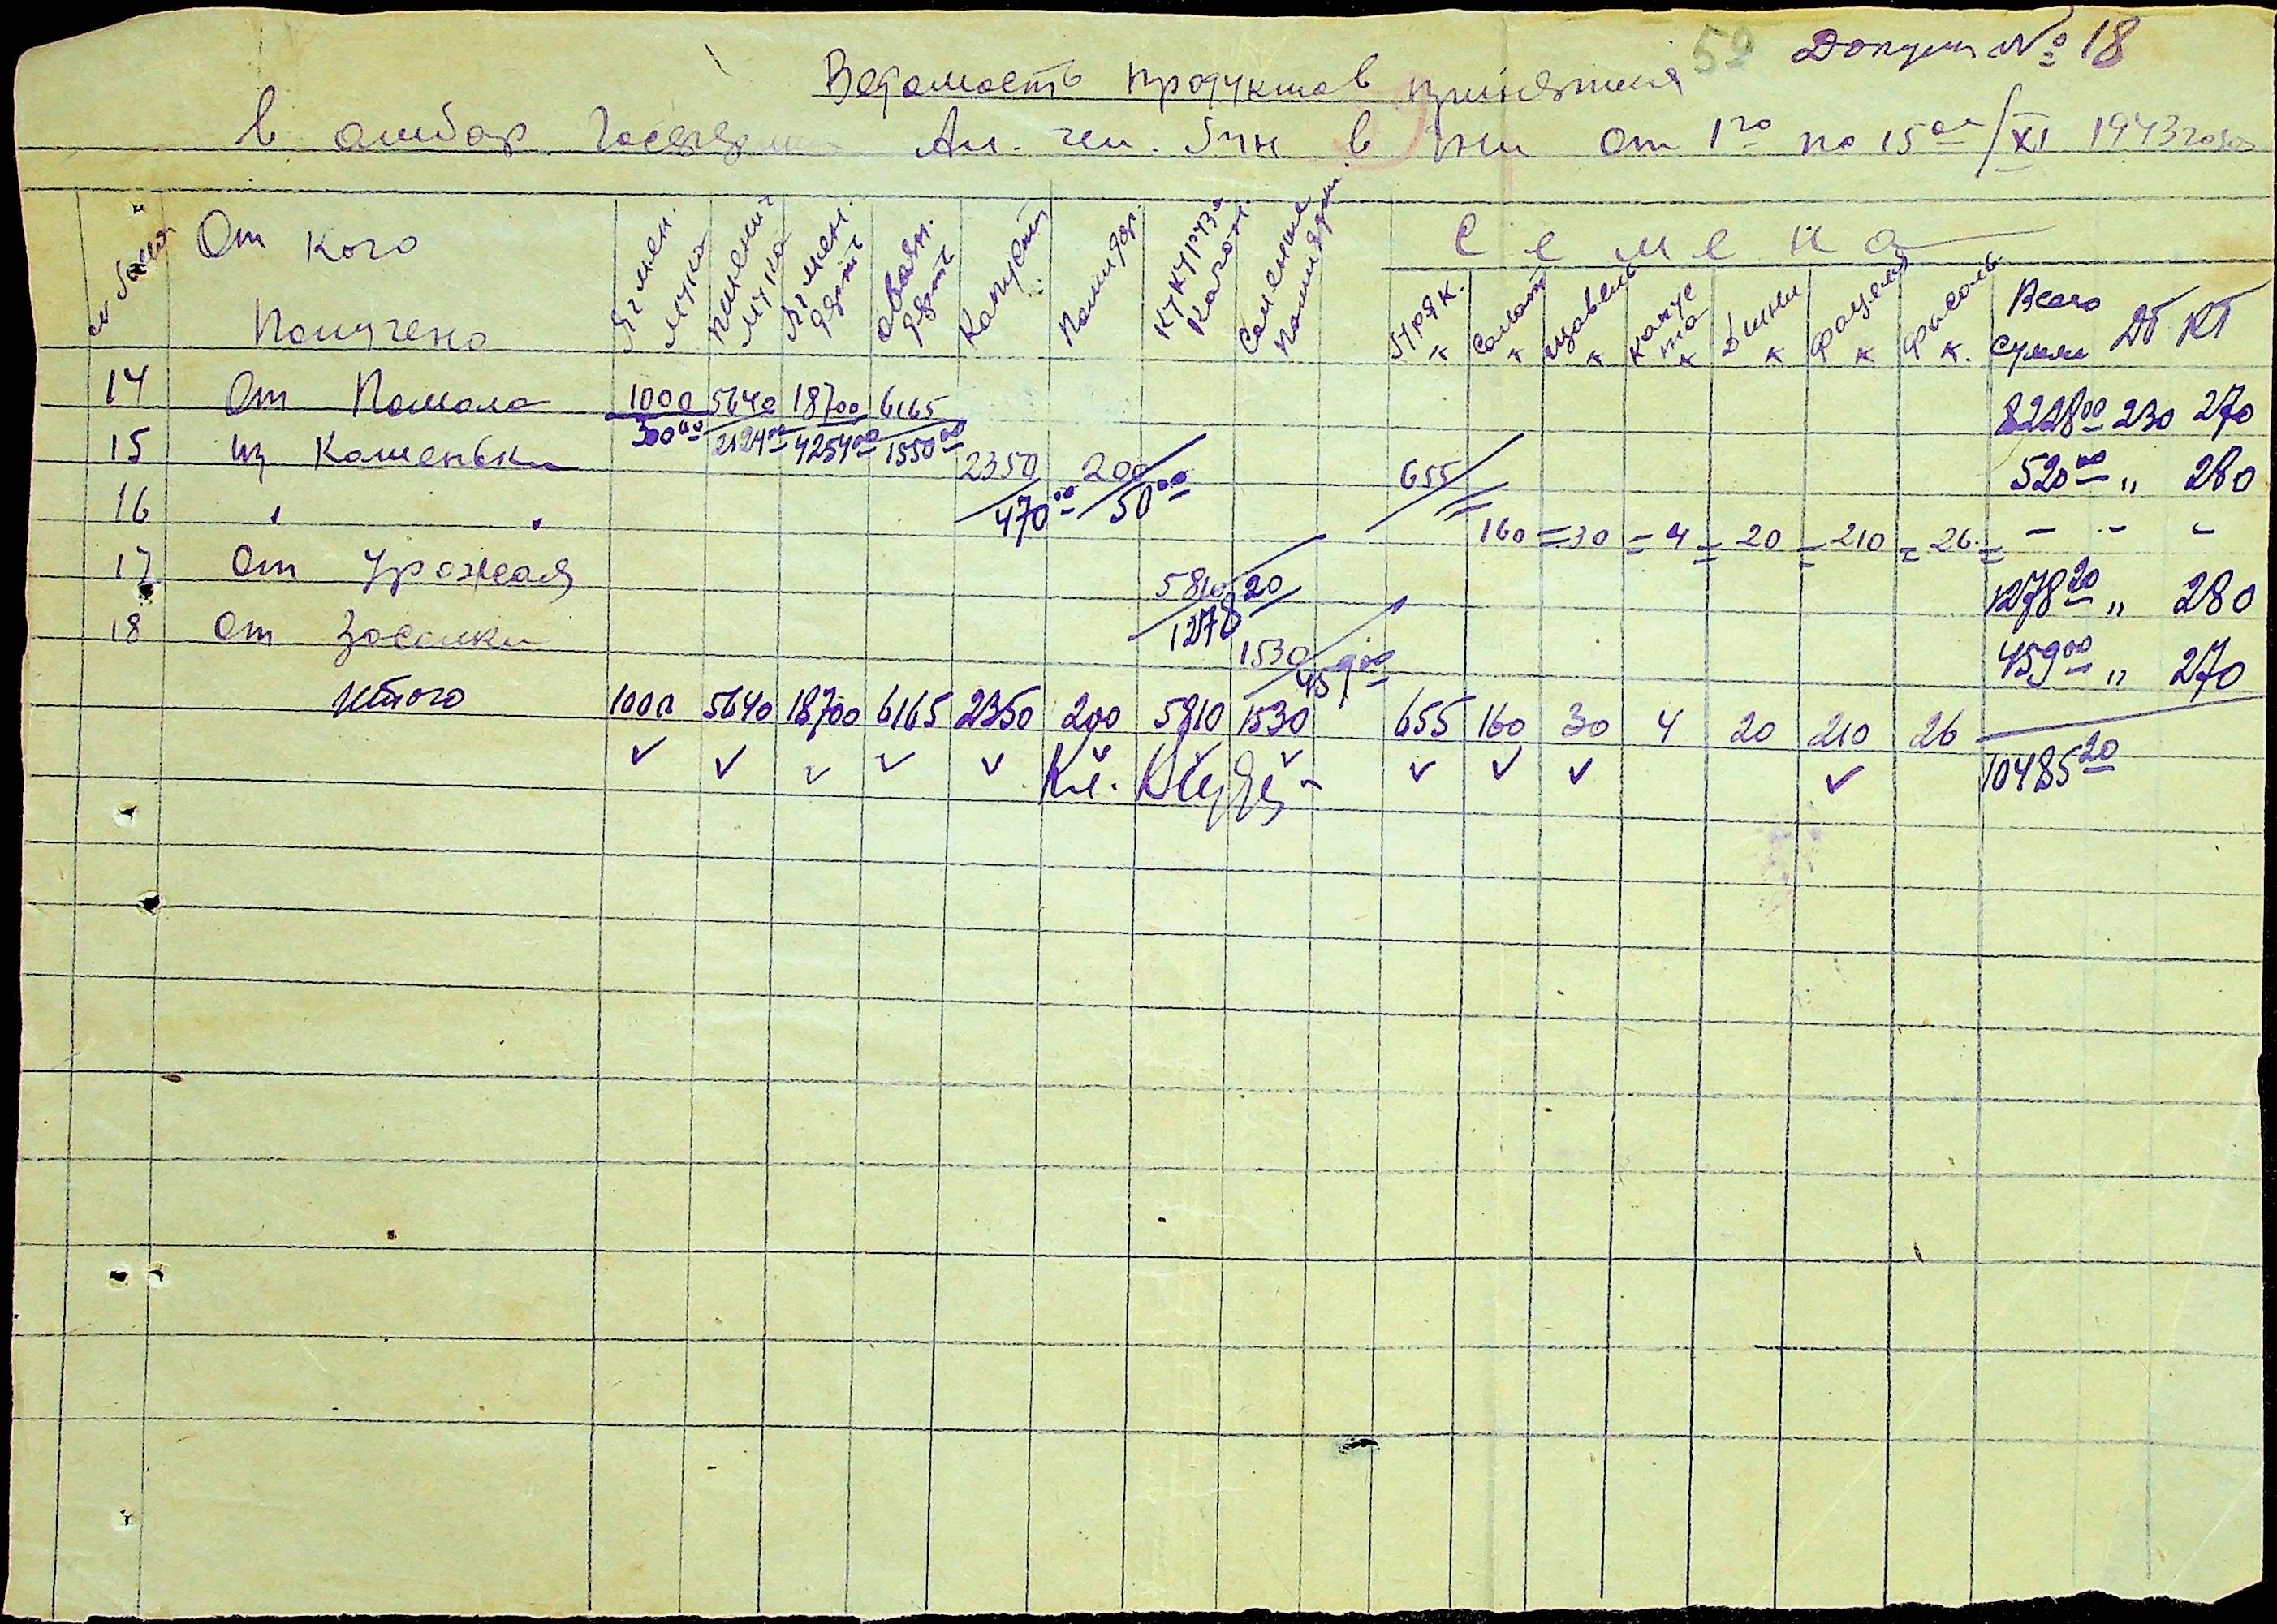 59 Докум № 18
Ведомость продуктов принятия
в амбар Ан. чеш. в от 1го по 15ое/XI 1943 года
От кого Получено
Ячмен. мука Пшенич мука Ячмен. дерть Овсян. дерть Капуста Помидор. Кукуруза Качан. Соленные Помидори
Семена
Буряк. к Салат к щавель к капуста к Дыни к фацелия к фасоль к. Всего сумма ДТ КТ
14 От Помола 1000 5640 18700 6165 8228 00 230 270
300 00 2124 00 4254 00 1550 00
15 из Каменьки 2350 200 655 520 00 " 280
470 00 50 00
16 " " 160 = 30 = 4 = 20 = 210 = 26 = - - -
17 От Урожая 5810 20 1278 20 " 280
1278
18 От Засолки 1530 459 00 " 270
459 00
Итого 1000 5640 18700 6165 2350 200 5810 1530 655 160 30 4 20 210 26
10485 20
Кл.